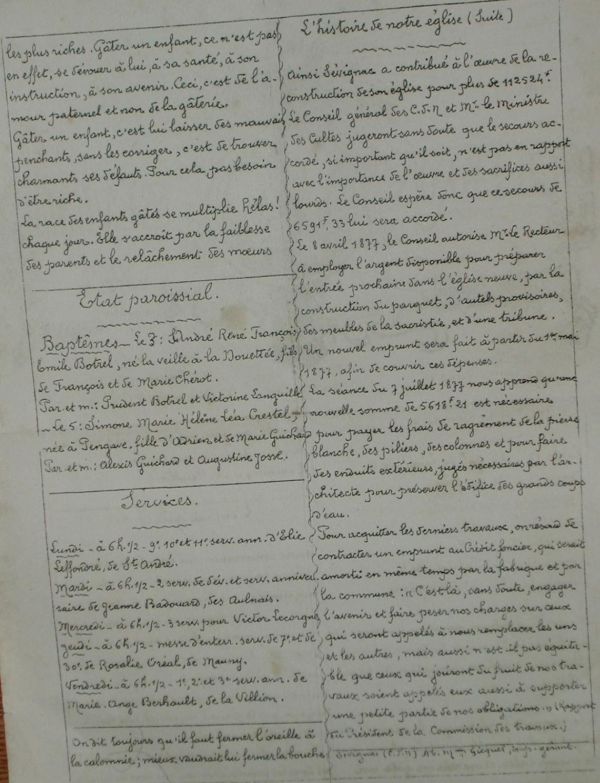 les plus riches. Gâter un enfant, ce n'est pas
en effet, se dévouer à lui, à sa santé, à son
instruction, à son avenir. Ceci, c'est de l'a-
mour paternel et non de la gâterie.
Gâter un enfant, c'est lui laisser des mauvais
penchants, sans les corriger, c'est de trouver
charmants ses défauts. Pour cela, pas besoin
d'être riche.
La race des enfants gâtés se multiplie hélas!
chaque jour. Elle s'accroît par la faiblesse
des parents et le relâchement des mœurs
Etat paroissial.
Baptêmes - Le 3: André René François
Emile Botrel, né la veille à la Douettée, fils
de François et de Marie Chérot.
Par. et m.: Prudent Botrel et Victorine Languille
- Le 5: Simone Marie Hélène Léa Crestel
née à Pengave, fille d'Adrien et de Marie Guichard
Par. et m.: Alexis Guichard et Augustine Josse.
Services.
Lundi - à 6h.1/2 - 9e 10e et 11e serv. ann. d'Elie
Leffondré, de St. André.
Mardi - à 6h.1/2 - 2 serv. de dév. et serv. anniver-
saire de Jeanne Badouard, des Aulnais.
Mercredi - à 6h.1/2 - 3 serv. pour Victor Lecorgne
Jeudi - à 6h.1/2 - messe d'enterr. serv. de 7e et de
30e de Rosalie Oréal, de Mauny.
Vendredi - à 6h.1/2 - 1e, 2e et 3e serv. ann. de
Marie-Ange Berhault, de la Villion.
On dit toujours qu'il faut fermer l'oreille à
la calomnie; mieux vaudrait lui fermer la bouche
L'histoire de notre église (Suite)
Ainsi Sévignac a contribué à l'œuvre de la re-
construction de son église pour plus de 112524f.
Le Conseil général des C.d.N et Mr. le Ministre
des Cultes jugeront sans doute que le secours ac-
cordé, si important qu'il soit, n'est pas en rapport
avec l'importance de l'œuvre et des sacrifices aussi
lourds. Le Conseil espère donc que ce secours de
6591f,33 lui sera accordé.
Le 8 avril 1877, le Conseil autorise Mr. le Recteur
à employer l'argent disponible pour préparer
l'entrée prochaine dans l'église neuve, par la
construction du parquet, d'autels provisoires,
des meubles de la sacristie, et d'une tribune.
Un nouvel emprunt sera fait à partir du 1er mai
1877, afin de couvrir ces dépenses.
La séance du 7 juillet 1877 nous apprend qu'une
nouvelle somme de 5618f21 est nécessaire
pour payer les frais de ragrément de la pierre
blanche, des piliers, des colonnes et pour faire
des enduits extérieurs, jugés nécessaires par l'ar-
chitecte pour préserver l'édifice des grands coups
d'eau.
Pour acquitter les derniers travaux, on résoud de
contracter un emprunt au Crédit foncier, qui serait
amorti en même temps par la fabrique et par
la commune: "C'est là, sans doute, engager
l'avenir et faire peser nos charges sur ceux
qui seront appelés à nous remplacer les uns
et les autres, mais aussi n'est-il pas équita-
ble que ceux qui jouiront du fruit de nos tra-
vaux soient appelés eux aussi à supporter
une petite partie de nos obligations." (Rapport
du Président de la Commission des travaux.)